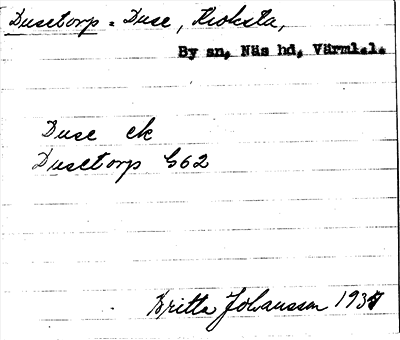 Dusetorp = Duse, Kroksta,
By sn, Näs hd, Värml.l.
Duse ek
Dusetorp G62
Britta Johansson 1937